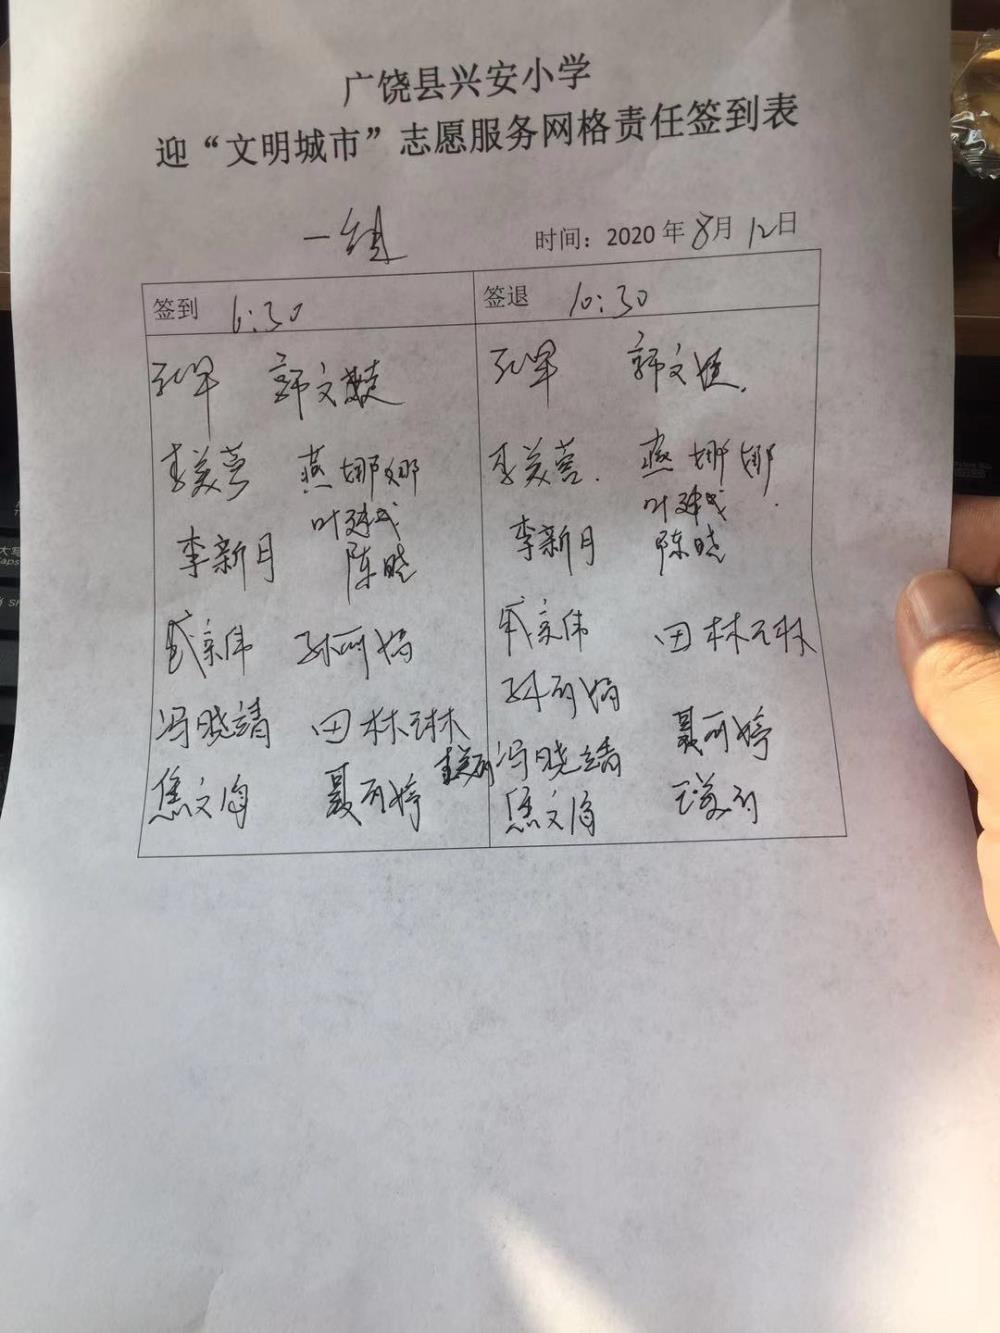 广饶县兴安小学
迎“文明城市”志愿服务网格责任签到表
一组 时间：2020年8月12日
签到 6:30 签退 10:30
郭文 郭文
李美蓉 燕娜娜 李美蓉. 燕娜娜
叶建成 叶建成
李新月 陈晓 李新月 陈晓
戚宗伟 孙丽娟 戚宗伟 田林林
孙丽娟
冯晓靖 田林林 冯晓靖 聂丽婷
焦文海 聂丽婷 焦文海